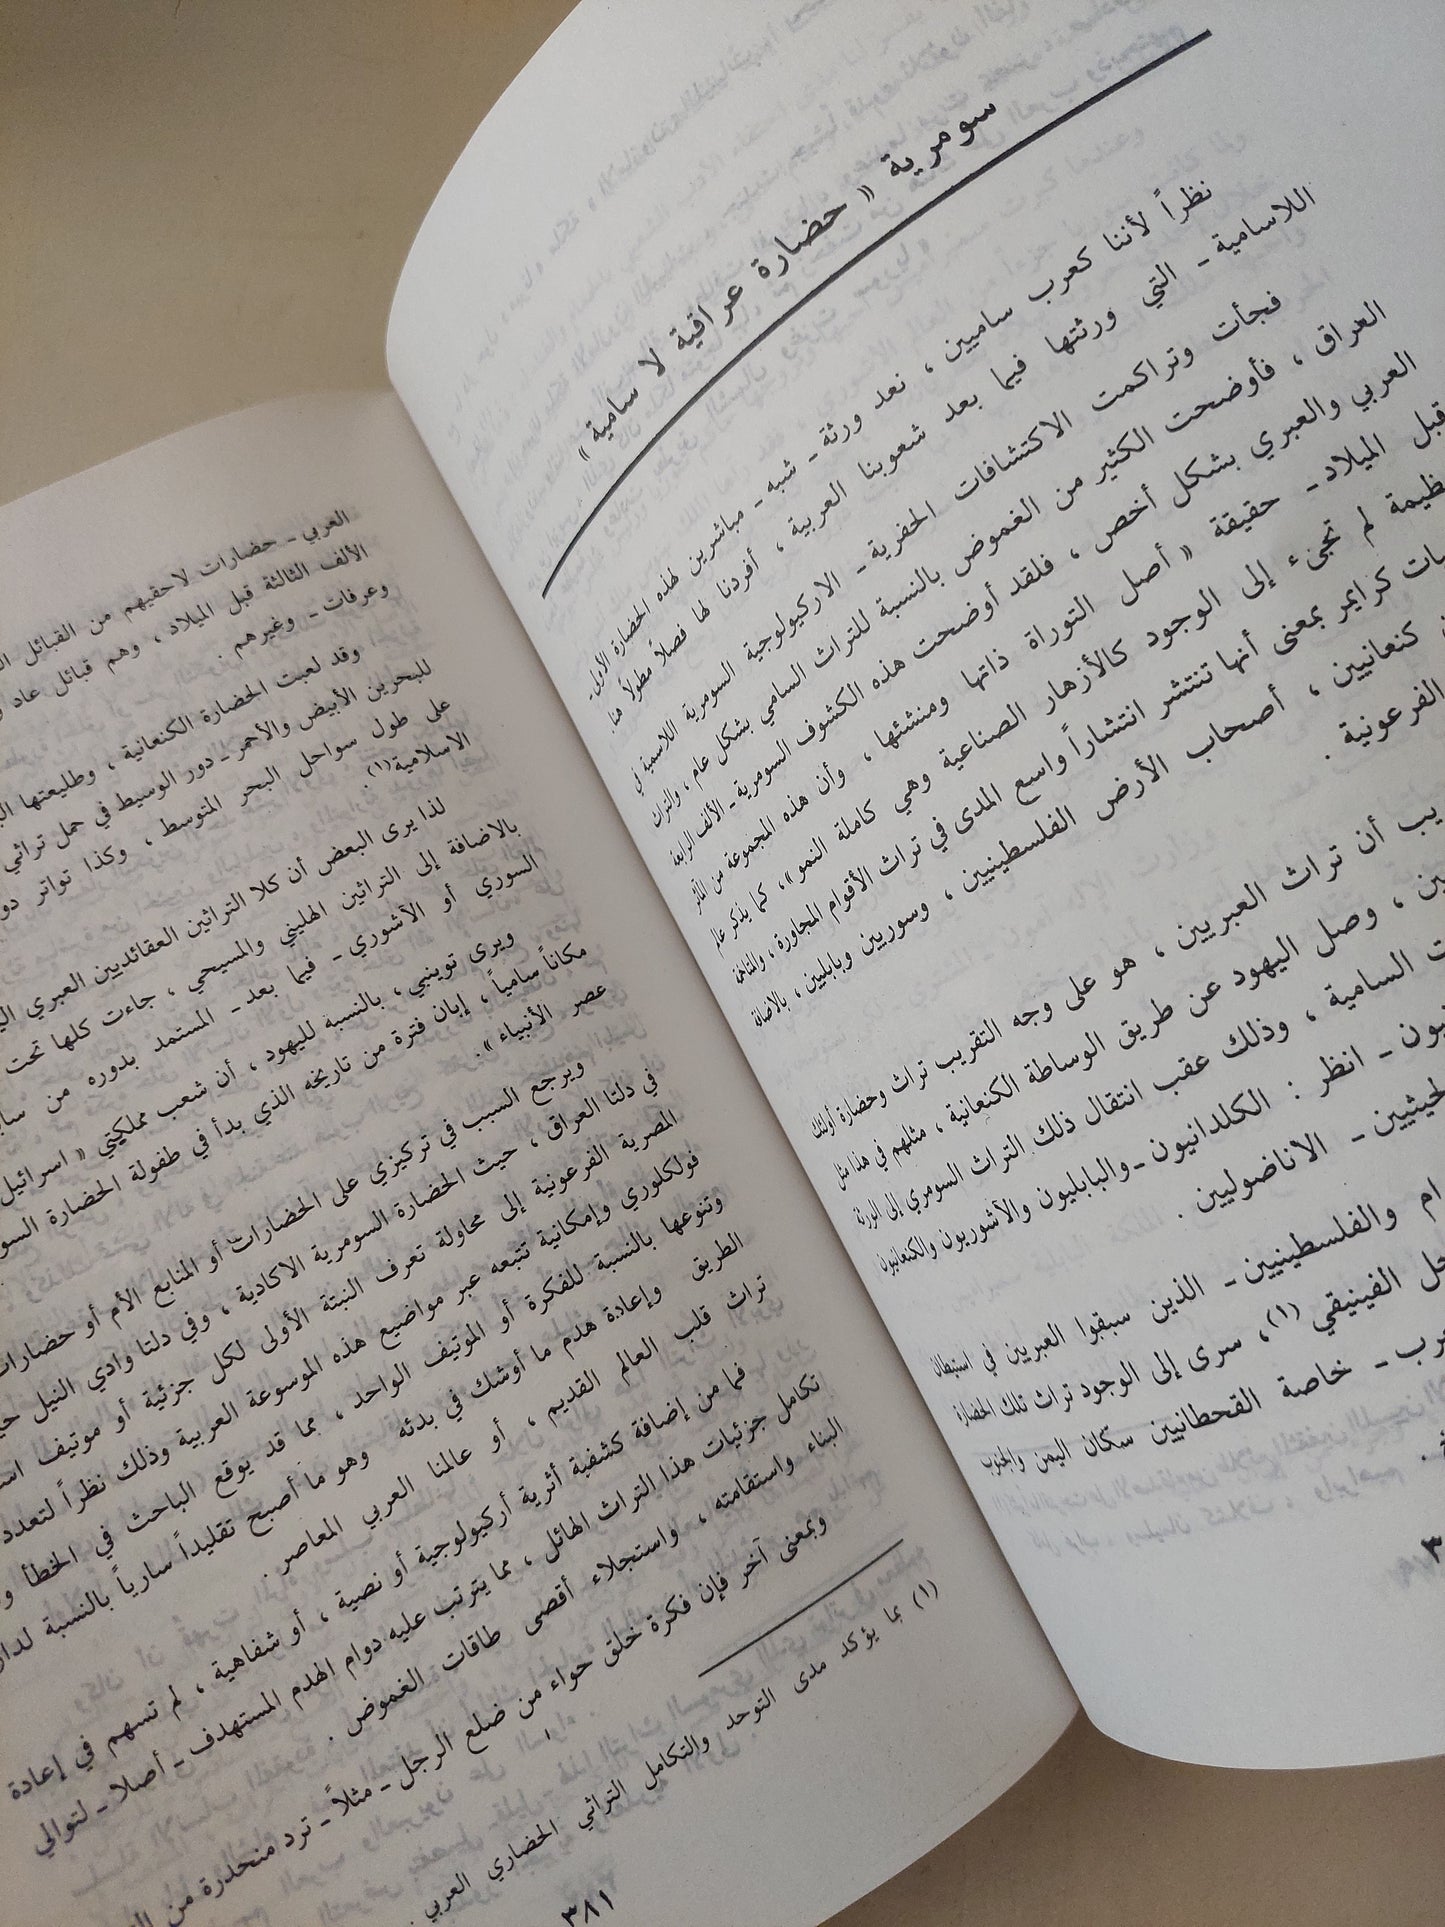 سومرية « حضارة عراقية لا سامية »
نظراً لأننا كعرب ساميين ، نعد ورثة ـ شبه ـ مباشرين لهذه الحضارة الأولى ـ
اللاسامية ـ التي ورثتها فيما بعد شعوبنا العربية ، أفردنا لها فصلاً مطولاً هنا .
فجأت وتراكمت الاكتشافات الحفرية ـ الاركيولوجية السومرية اللاسمية في
العراق ، فأوضحت الكثير من الغموض بالنسبة للتراث السامي بشكل عام ، والتراث
العربي والعبري بشكل أخص ، فلقد أوضحت هذه الكشوف السومرية ـ الألف الرابعة
قبل الميلاد ـ حقيقة « أصل التوراة ذاتها ومنشئها ، وأن هذه المجموعة من المآثر
لم تجىء إلى الوجود كالأزهار الصناعية وهي كاملة النمو » ، كما يذكر عالم
كرايمر بمعنى أنها تنتشر انتشاراً واسع المدى في تراث الأقوام المجاورة ، والمتاخمة
كنعانيين ، أصحاب الأرض الفلسطينيين ، وسوريين وبابليين ، بالاضافة
الفرعونية .
أن تراث العبريين ، هو على وجه التقريب تراث وحضارة أولئك
، وصل اليهود عن طريق الوساطة الكنعانية ، مثلهم في هذا مثل
السامية ، وذلك عقب انتقال ذلك التراث السومري إلى الورثة
ـ انظر : الكلدانيون ـ والبابليون والآشوريون والكنعانيون
ـ الاناضوليين .
والفلسطينيين ـ الذين سبقوا العبريين في استيطان
الفينيقي (١) ، سرى إلى الوجود تراث تلك الحضارة
ـ خاصة القحطانيين سكان اليمن والجنوب
العربي ـ حضارات لاحقيهم من القبائل
الألف الثالثة قبل الميلاد ، وهم قبائل عاد
وعرفات ـ وغيرهم .
وقد لعبت الحضارة الكنعانية ، وطليعتها
للبحرين الأبيض والأحمر ـ دور الوسيط في حمل تراثي
على طول سواحل البحر المتوسط ، وكذا تواتر
الاسلامية (١) .
لذا يرى البعض أن كلا التراثين العقائديين العبري
بالاضافة إلى التراثين الهليني والمسيحي ، جاءت كلها تحت
السوري أو الأشوري ـ فيما بعد ـ المستمد بدوره من
ويرى توينبي ، بالنسبة لليهود ، أن شعب مملكيتي « اسرائيل
مكاناً سامياً ، إبان فترة من تاريخه الذي بدأ في طفولة الحضارة
عصر الأنبياء » .
ويرجع السبب في تركيزي على الحضارات أو المنابع الأم أو حضارات
في دلتا العراق ، حيث الحضارة السومرية الاكادية ، وفي دلتا وادي النيل
المصرية الفرعونية إلى محاولة تعرف النبتة الأولى لكل جزئية أو موتيف
فولكلوري وإمكانية تتبعه عبر مواضيع هذه الموسوعة العربية وذلك نظراً لتعدد
وتنوعها بالنسبة للفكرة أو الموتيف الواحد ، مما قد يوقع الباحث في الخطأ
الطريق وإعادة هدم ما أوشك في بدئه وهو ما أصبح تقليداً سارياً بالنسبة
تراث قلب العالم القديم ، أو عالمنا العربي المعاصر .
فما من إضافة كشفية أثرية أركيولوجية أو نصية ، أو شفاهية ، لم تسهم في إعادة
تكامل جزئيات هذا التراث الهائل ، مما يترتب عليه دوام الهدم المستهدف ـ أصلا ـ لتوالي
البناء واستقامته ، واستجلاء أقصى طاقات الغموض .
وبمعنى آخر فإن فكرة خلق حواء من ضلع الرجل ـ مثلاً ـ ترد منحدرة من
(١) بما يؤكد مدى التوحد والتكامل التراثي الحضاري العربي .
٣٨١